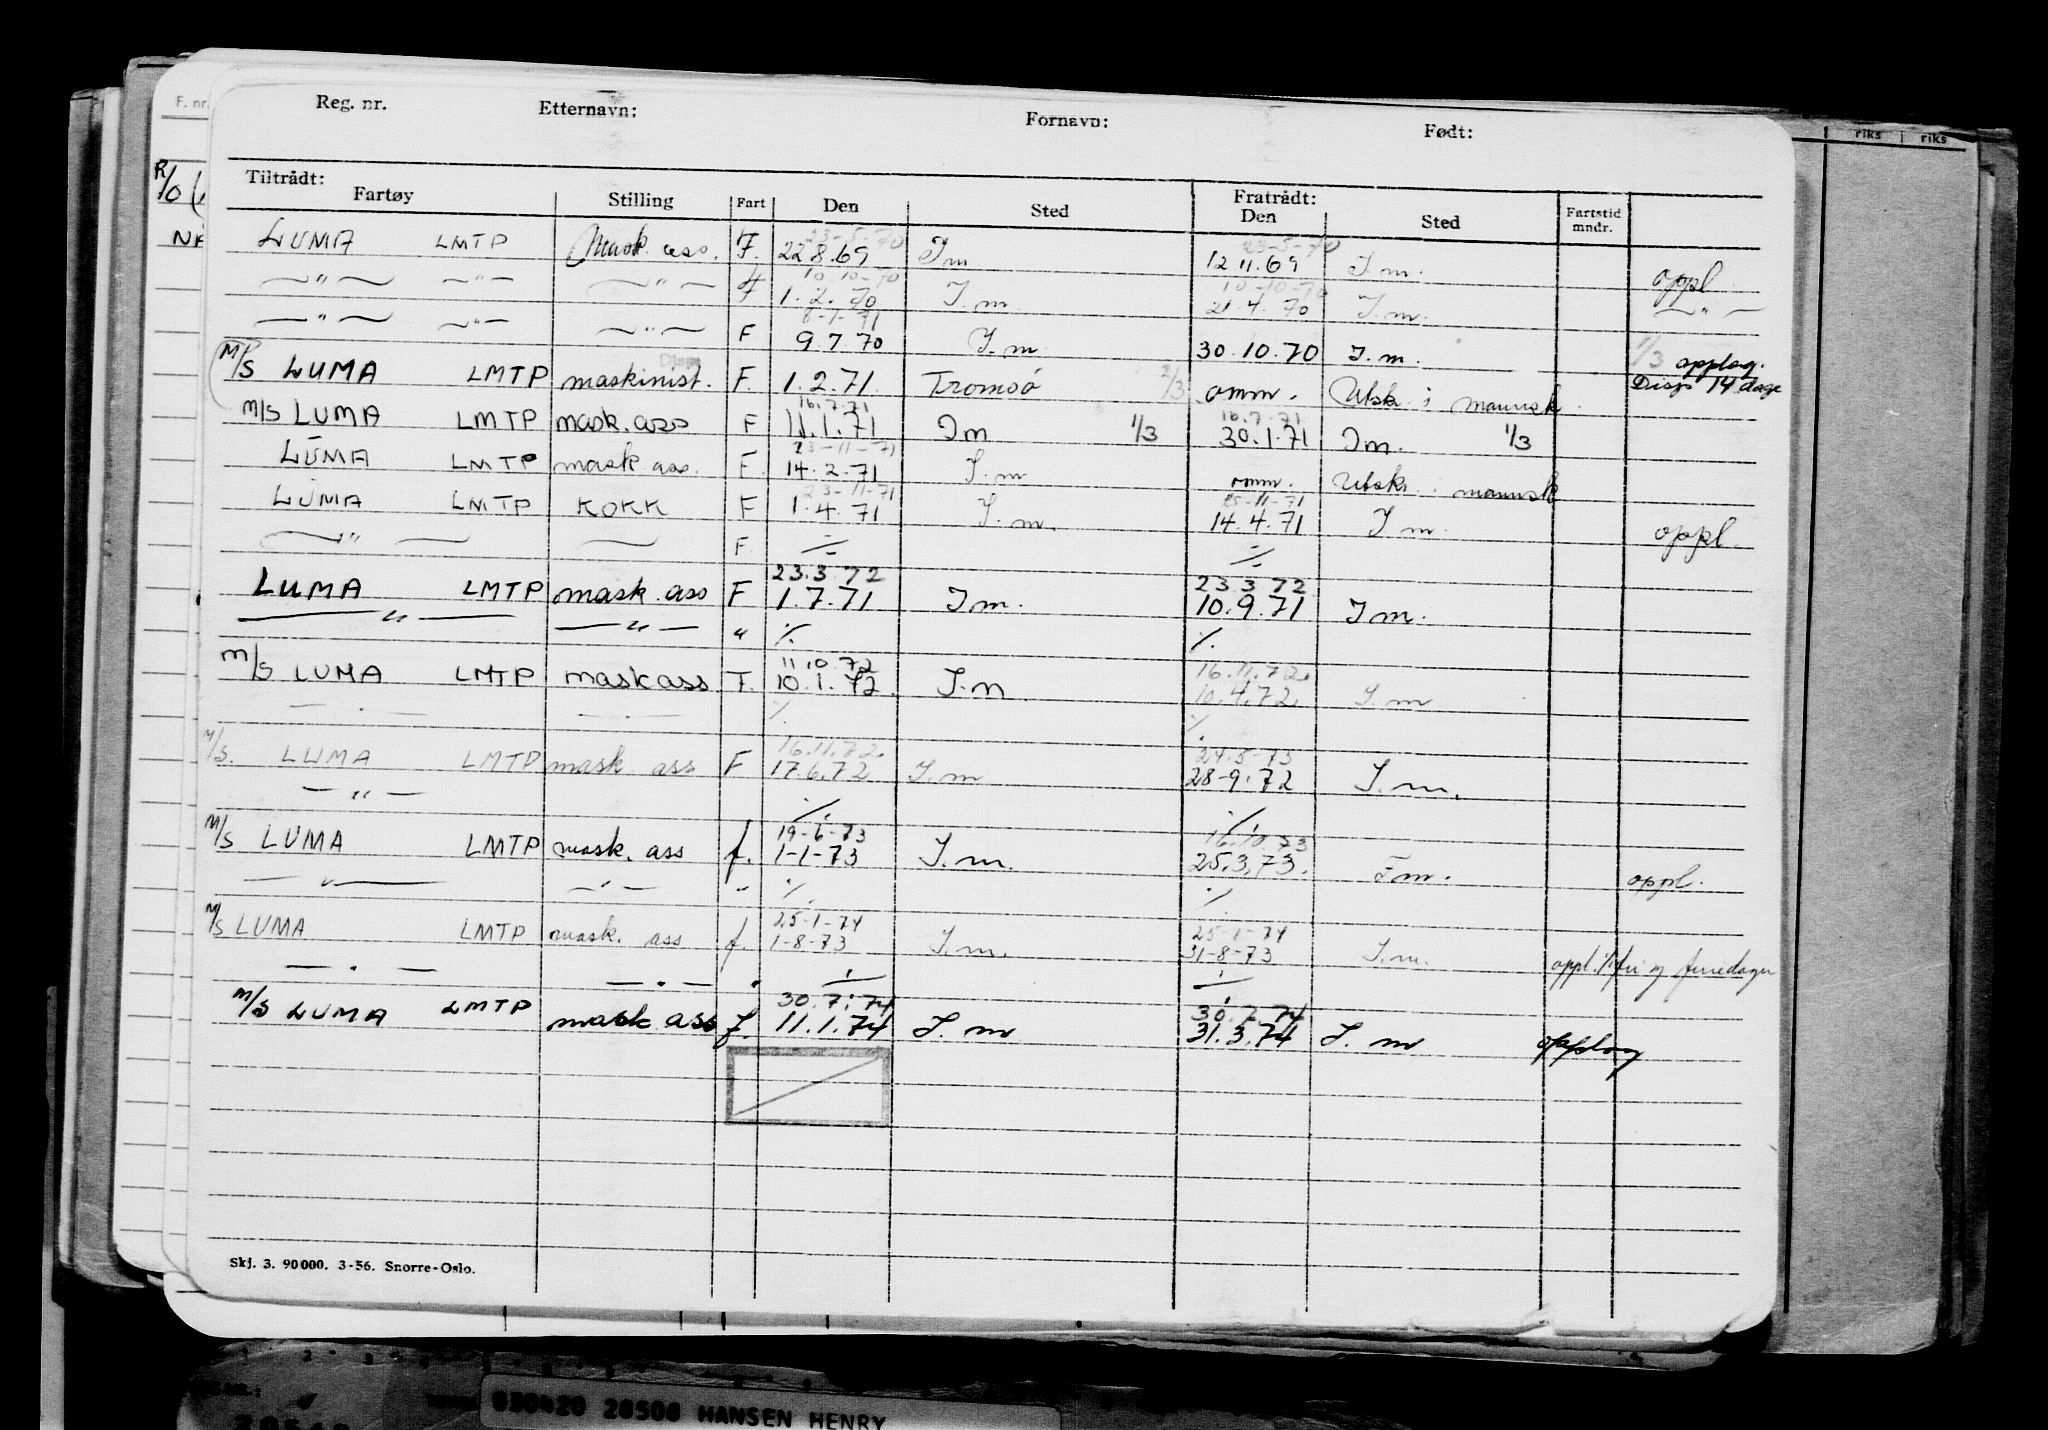 F. nr.
Reg. nr. Etternavn: Fornavn: Født:
riks riks
Tiltrådt: Fratrådt:
Fartøy Stilling Fart Den Sted Den Sted Fartstid mndr.
23-5-70 23-5-70
LUMA LMTP Mask. ass. F. 22.8.69 I m 12.11.69 I.m. oppl.
10-10-70 10-10-70
— " — — " — — " — F 1.2.70 I.m. 21.4.70 I.m. — " —
8-1-71
— " — — " — — " — F 9.7.70 I.m 30.10.70 I.m. 1/3 opplag.
M/S LUMA LMTP maskinist. F. 1.2.71 Tromsö 2/3 omm. Utsk. i mannsk Disp 14 dage
16.7.71 16.7.71
M/S LUMA LMTP mask. ass F 11.1.71 I m 1/3 30.1.71 I m. 1/3
23-11-71
LUMA LMTP mask. ass. F. 14.2.71 I.m omm. Utskr. i mannsk
23-11-71 25-11-71
LUMA LMTP KOKK F 1.4.71 I.m. 14.4.71 I m. oppl.
— " — — — F. ./. ./.
23.3.72 23.3.72
LUMA LMTP mask. ass F 1.7.71 I m. 10.9.71 I m.
— " — — " — " ./. ./.
11.10.72 16.11.72.
M/S LUMA LMTP mask ass F. 10.1.72. I.m 10.4.72. I.m
— . — — . — ./. ./.
16.11.72. 24.5-73
M/S. LUMA LMTP mask. ass F 17.6.72 I.m 28-9.72 I.m.
— " — ./. ./.
19-6-73 16.10.73
M/S LUMA LMTP mask. ass f. 1-1-73 I.m. 25.3.73. I m. oppl.
— " — — " — " ./. ./.
25-1-74 25-1-74
M/S LUMA LMTP mask. ass f. 1-8-73 I.m. 31-8-73 I.m. oppl. fri og feriedager
— . — — . — " ./. ./.
30.7.74 30.7.74
M/S LUMA LMTP mask ass f. 11.1.74 I. m 31.3.74 I. m opplag
Skj. 3. 90000. 3-56. Snorre-Oslo.
030420 20500 HANSEN HENRY